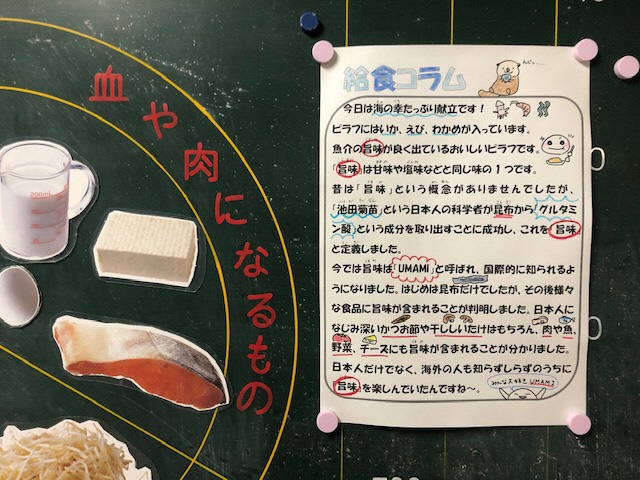 血や肉になるもの
200mL
給食コラム
今日は海の幸たっぷり献立です！
ピラフにはいか、えび、わかめが入っています。
魚介の旨味が良く出ているおいしいピラフです。
「旨味」は甘味や塩味などと同じ味の1つです。
昔は「旨味」という概念がありませんでしたが、
「池田菊苗」という日本人の科学者が昆布から「グルタミ
ン酸」という成分を取り出すことに成功し、これを「旨味」
と定義しました。
今では旨味は「UMAMI」と呼ばれ、国際的に知られるよ
うになりました。はじめは昆布だけでしたが、その後様々
な食品に旨味が含まれることが判明しました。日本人に
なじみ深いかつお節や干ししいたけはもちろん、肉や魚、
野菜、チーズにも旨味が含まれることが分かりました。
日本人だけでなく、海外の人も知らずしらずのうちに
「旨味」を楽しんでいたんですね～。
みんな大好き UMAMI